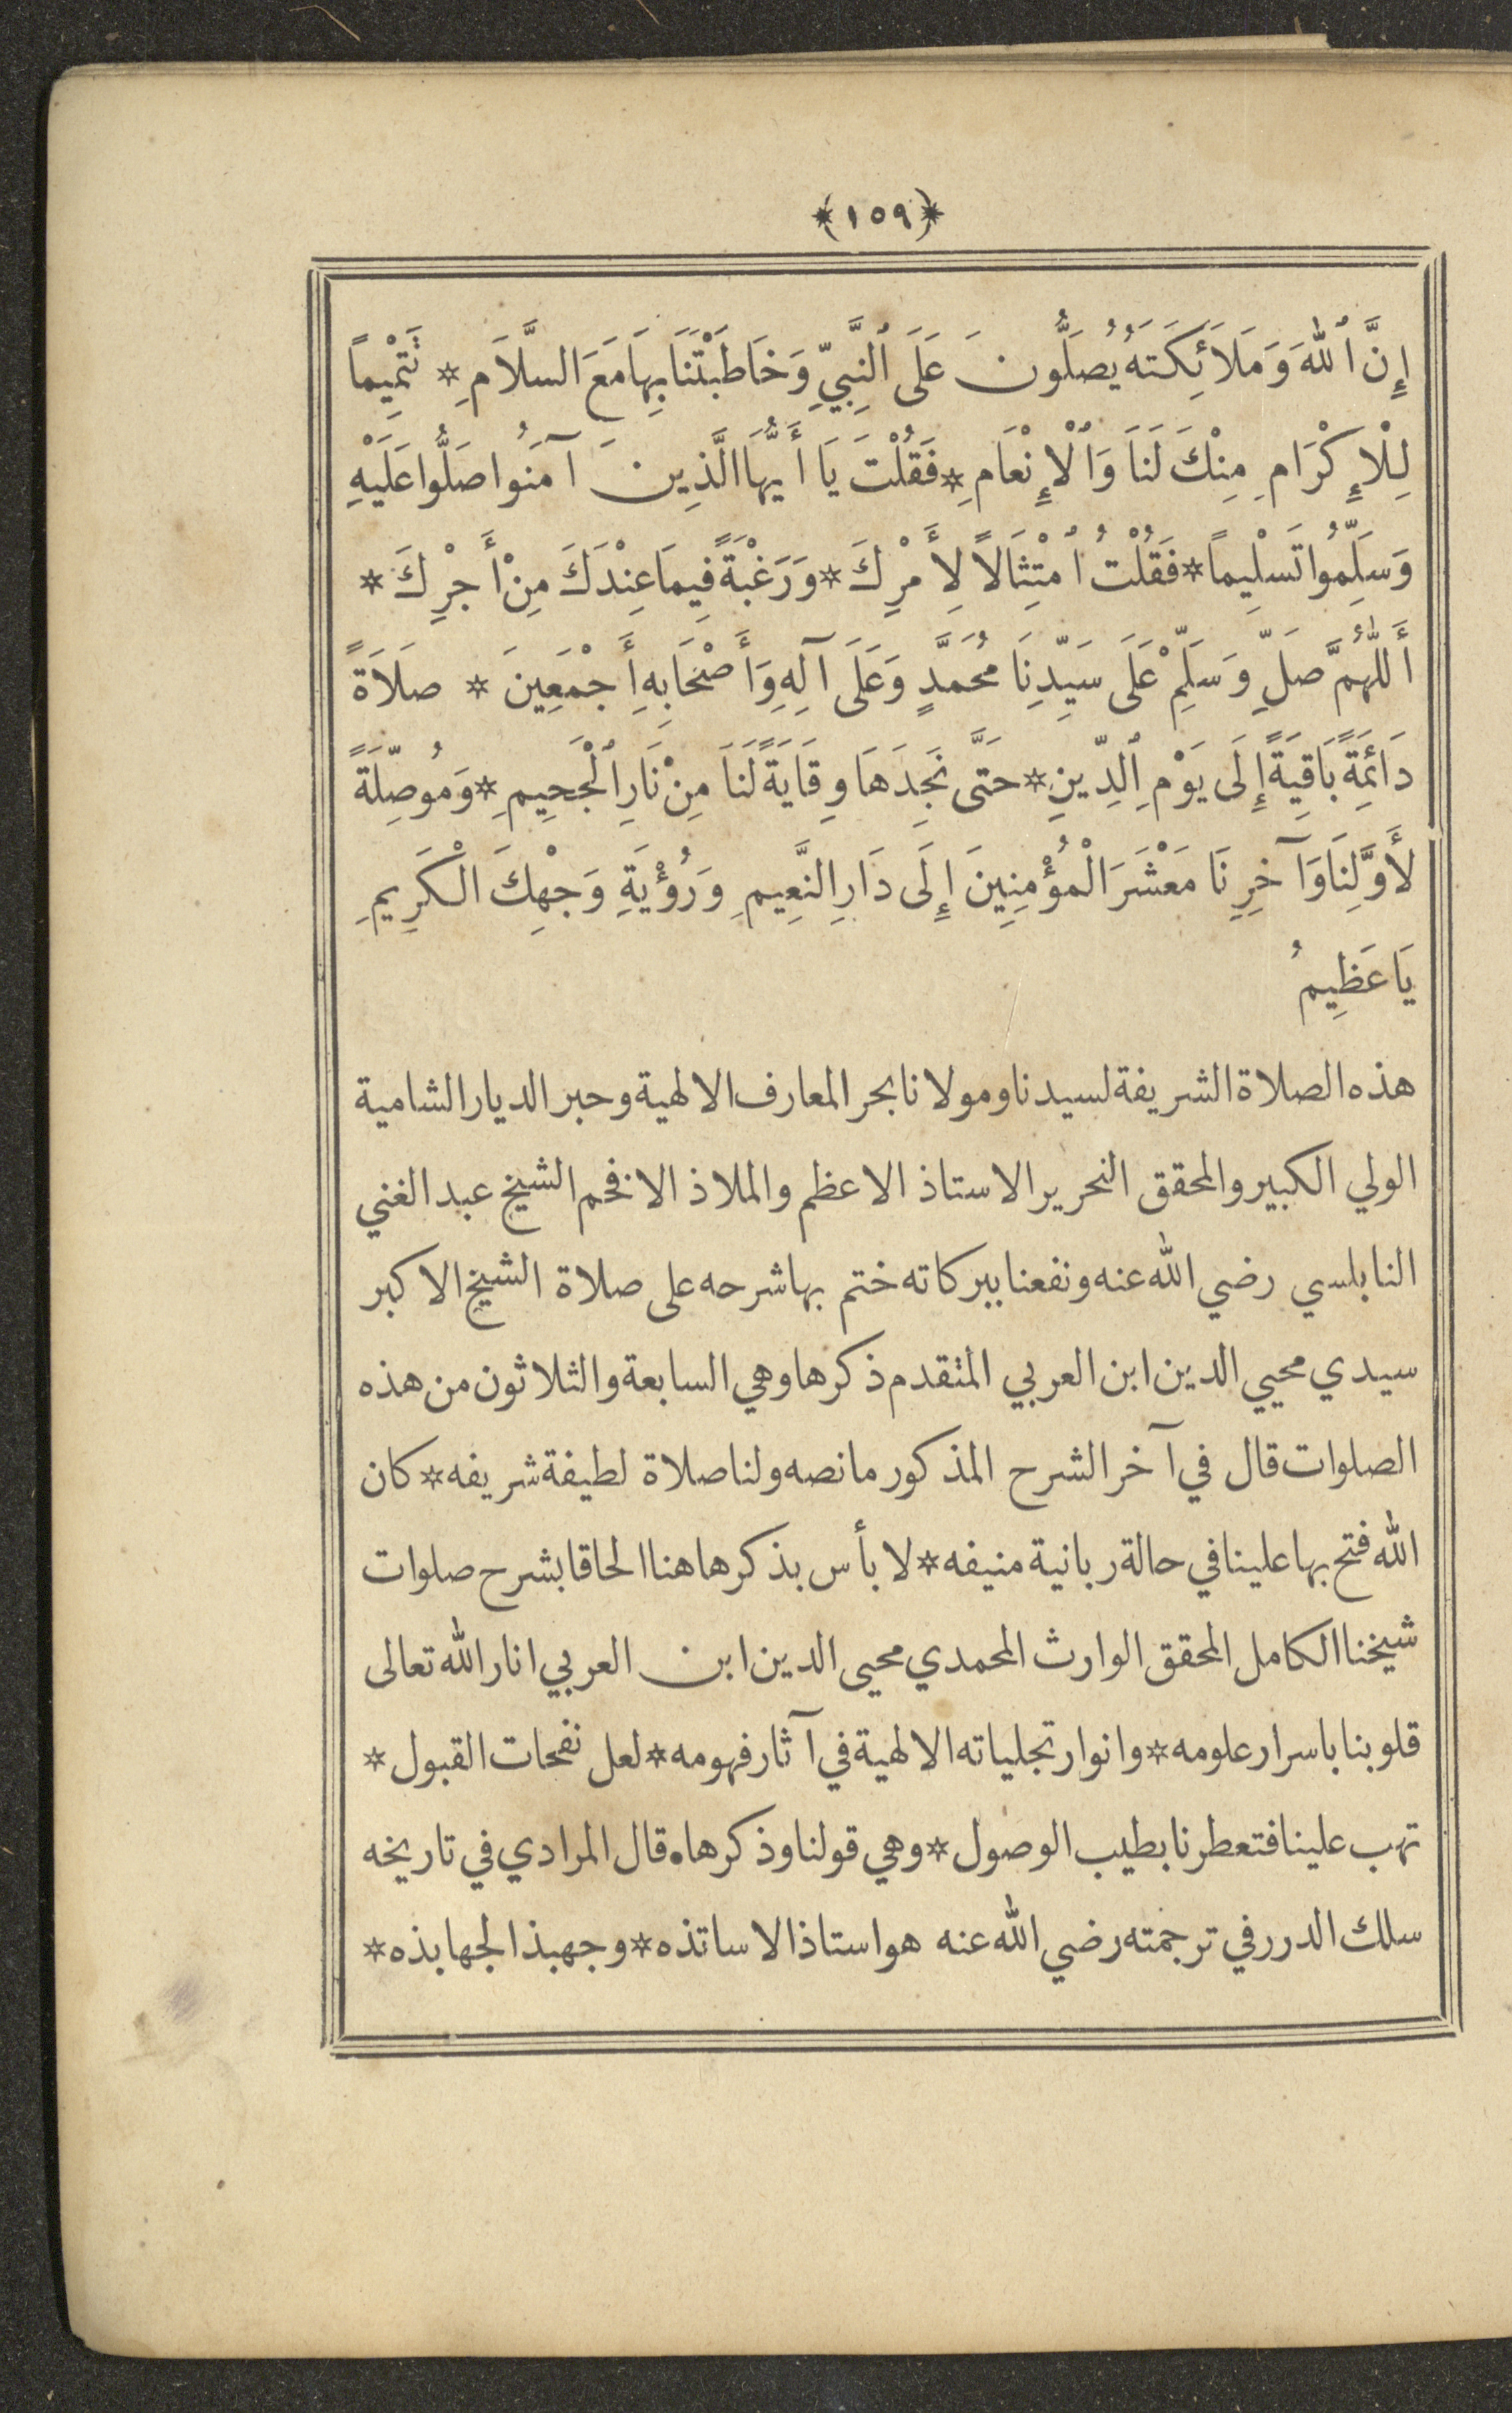 ﴿١٥٩﴾
إِنَّ ٱللهَ وَمَلَائِكَتَهُ يُصَلُّونَ عَلَى ٱلنَّبِيِّ وَخَاطَبْتَنَا بِهَا مَعَ السَّلَامِ * تَتْمِيماً
لِلْإِكْرَامِ مِنْكَ لَنَا وَٱلْإِنْعَامِ * فَقُلْتَ يَا أَيُّهَا الَّذِينَ آمَنُوا صَلُّوا عَلَيْهِ
وَسَلِّمُوا تَسْلِيماً * فَقُلْتُ ٱمْتِثَالاً لِأَمْرِكَ * وَرَغْبَةً فِيمَا عِنْدَكَ مِنْ أَجْرِكَ *
أَللّٰهُمَّ صَلِّ وَسَلِّمْ عَلَى سَيِّدِنَا مُحَمَّدٍ وَعَلَى آلِهِ وَأَصْحَابِهِ أَجْمَعِينَ * صَلَاةً
دَائِمَةً بَاقِيَةً إِلَى يَوْمِ ٱلدِّينِ * حَتَّى نَجِدَهَا وِقَايَةً لَنَا مِنْ نَارِ ٱلْجَحِيمِ * وَمُوصِّلَةً
لأَوَّلِنَا وَآخِرِنَا مَعْشَرَ الْمُؤْمِنِينَ إِلَى دَارِ النَّعِيمِ وَرُؤْيَةِ وَجْهِكَ الْكَرِيمِ
يَا عَظِيمُ
هذه الصلاة الشريفة لسيدنا ومولانا بحر المعارف الالهية وحبر الديار الشامية
الولي الكبير والمحقق النحرير الاستاذ الاعظم والملاذ الافخم الشيخ عبد الغني
النابلسي رضي الله عنه ونفعنا ببركاته ختم بها شرحه على صلاة الشيخ الاكبر
سيدي محيي الدين ابن العربي المتقدم ذكرها وهي السابعة والثلاثون من هذه
الصلوات قال في آخر الشرح المذكور ما نصه ولنا صلاة لطيفة شريفه * كان
الله فتح بها علينا في حالة ربانية منيفه * لا بأس بذكرها هنا الحاقا بشرح صلوات
شيخنا الكامل المحقق الوارث المحمدي محيى الدين ابن العربي انار الله تعالى
قلوبنا باسرار علومه * وانوار تجلياته الالهية في آثار فهومه * لعل نفحات القبول *
تهب علينا فتعطرنا بطيب الوصول * وهي قولنا وذكرها . قال المرادي في تاريخه
سلك الدرر في ترجمته رضي الله عنه هو استاذ الاساتذه * وجهبذ الجهابذه *